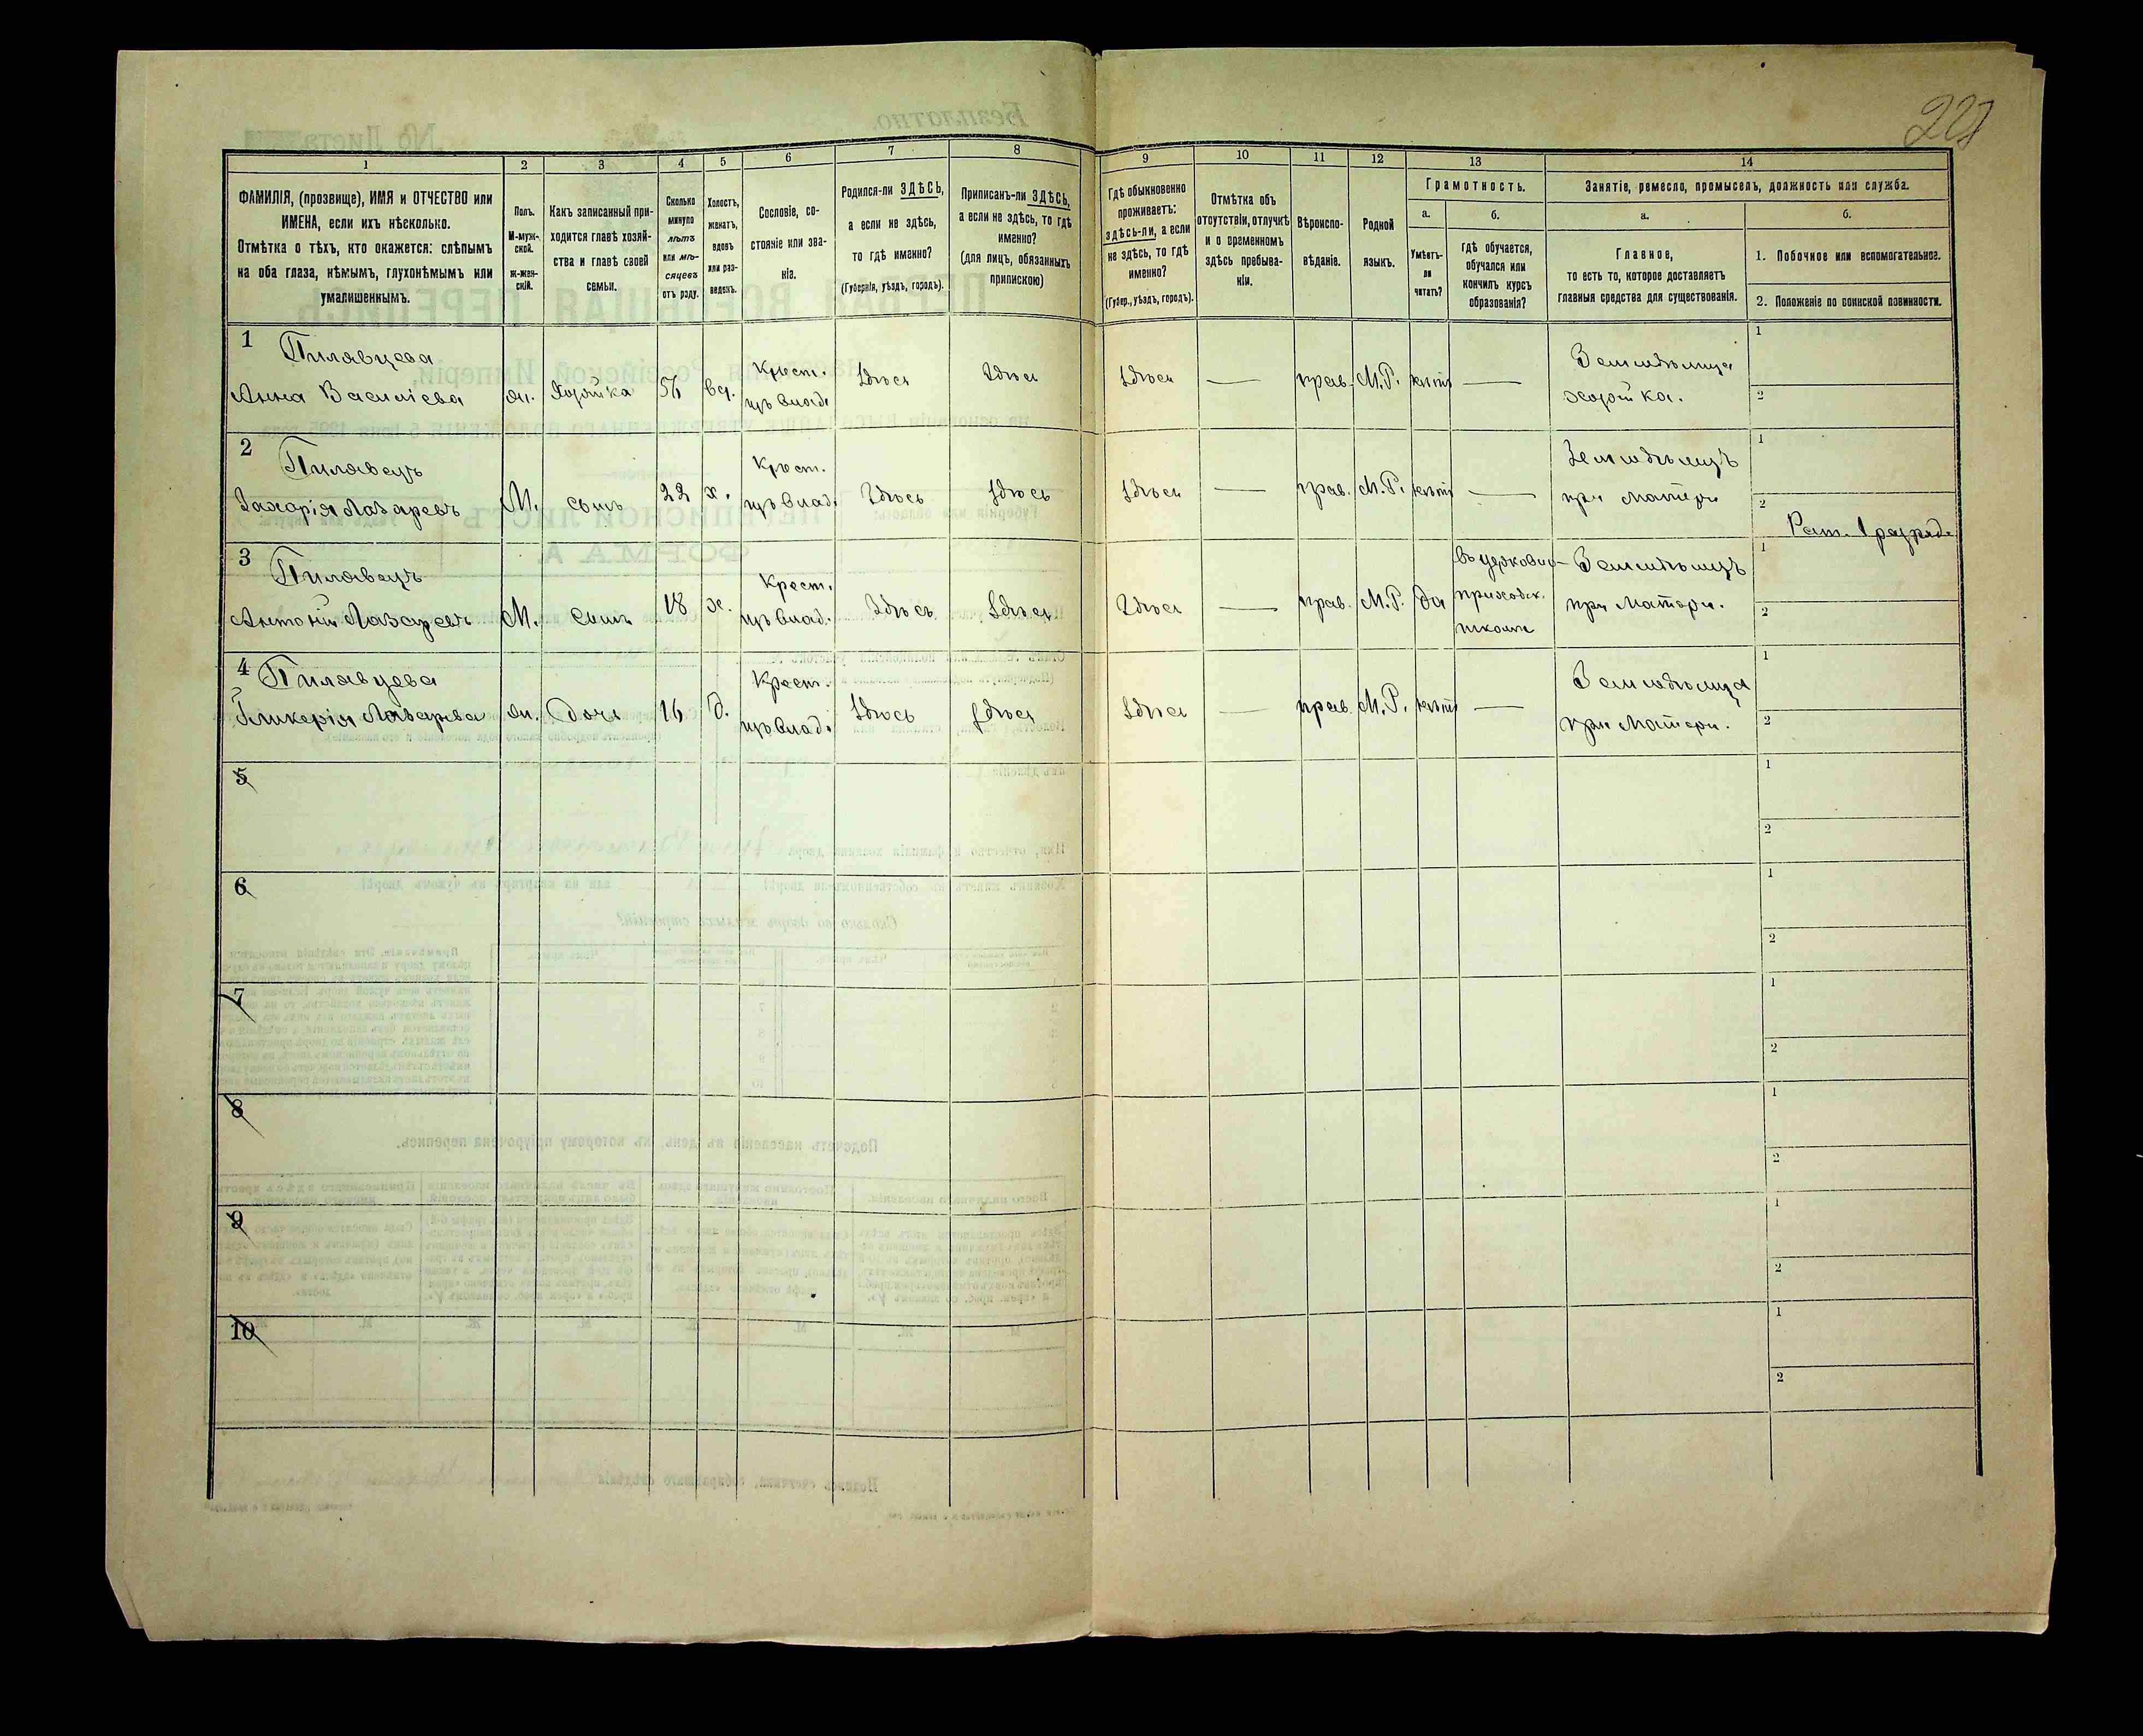 221
1
2
3
4
5
6
7
8
9
10
11
12
13
14
ФАМИЛІЯ, (прозвище), ИМЯ и ОТЧЕСТВО или
ИМЕНА, если ихъ нѣсколько.
Отмѣтка о тѣхъ, кто окажется: слѣпымъ
на оба глаза, нѣмымъ, глухонѣмымъ или
умалишеннымъ.
Полъ.
М-муж-
ской.
ж-жен-
скій.
Какъ записанный при-
ходится главѣ хозяй-
ства и главѣ своей
семьи.
Сколько
минуло
лѣтъ
или мѣ-
сяцевъ
отъ роду.
Холостъ,
женатъ,
вдовъ
или раз-
веденъ.
Сословіе, со-
стояніе или зва-
ніе.
Родился-ли ЗДѢСЬ,
а если не здѣсь,
то гдѣ именно?
(Губернія, уѣздъ, городъ).
Приписанъ-ли ЗДѢСЬ,
а если не здѣсь, то гдѣ
именно?
(для лицъ, обязанныхъ
припискою)
Гдѣ обыкновенно
проживаетъ:
здѣсь-ли, а если
не здѣсь, то гдѣ
именно?
(Губер., уѣздъ, городъ).
Отмѣтка объ
отсутствіи, отлучкѣ
и о временномъ
здѣсь пребыва-
ніи.
Вѣроиспо-
вѣданіе.
Родной
языкъ.
Грамотность.
а.
Умѣетъ-
ли
читать?
б.
гдѣ обучается,
обучался или
кончилъ курсъ
образованія?
Занятіе, ремесло, промыселъ, должность или служба.
а.
Главное,
то есть то, которое доставляетъ
главныя средства для существованія.
б.
1. Побочное или вспомогательное.
2. Положеніе по воинской повинности.
1 Пилявцева
Анна Василіева
ж. Хозяйка 56 вд.
Крест.
изъ влад.
Здѣсь Здѣсь Здѣсь — прав. М.Р. нѣтъ —
Земледѣлица
хозяйка.
1
2
2 Пилявецъ
Захарія Лазаревъ
М. сынъ 22 х.
Крест.
изъ влад.
Здѣсь Здѣсь Здѣсь — прав. М.Р. нѣтъ —
Земледѣлецъ
при матери
1
2
Рат. 1 разряд.
3 Пилявецъ
Антоній Лазаревъ
М. сынъ 18 х.
Крест.
изъ влад.
Здѣсь Здѣсь Здѣсь — прав. М.Р. да
въ церковно-
приходск.
школѣ
Земледѣлецъ
при матери.
1
2
4 Пилявцева
Гликерія Лазарева
ж. дочь 16 д.
Крест.
изъ влад.
Здѣсь Здѣсь Здѣсь — прав. М.Р. нѣтъ —
Земледѣлица
при матери.
1
2
5
1
2
6
1
2
7
1
2
8
1
2
9
1
2
10
1
2